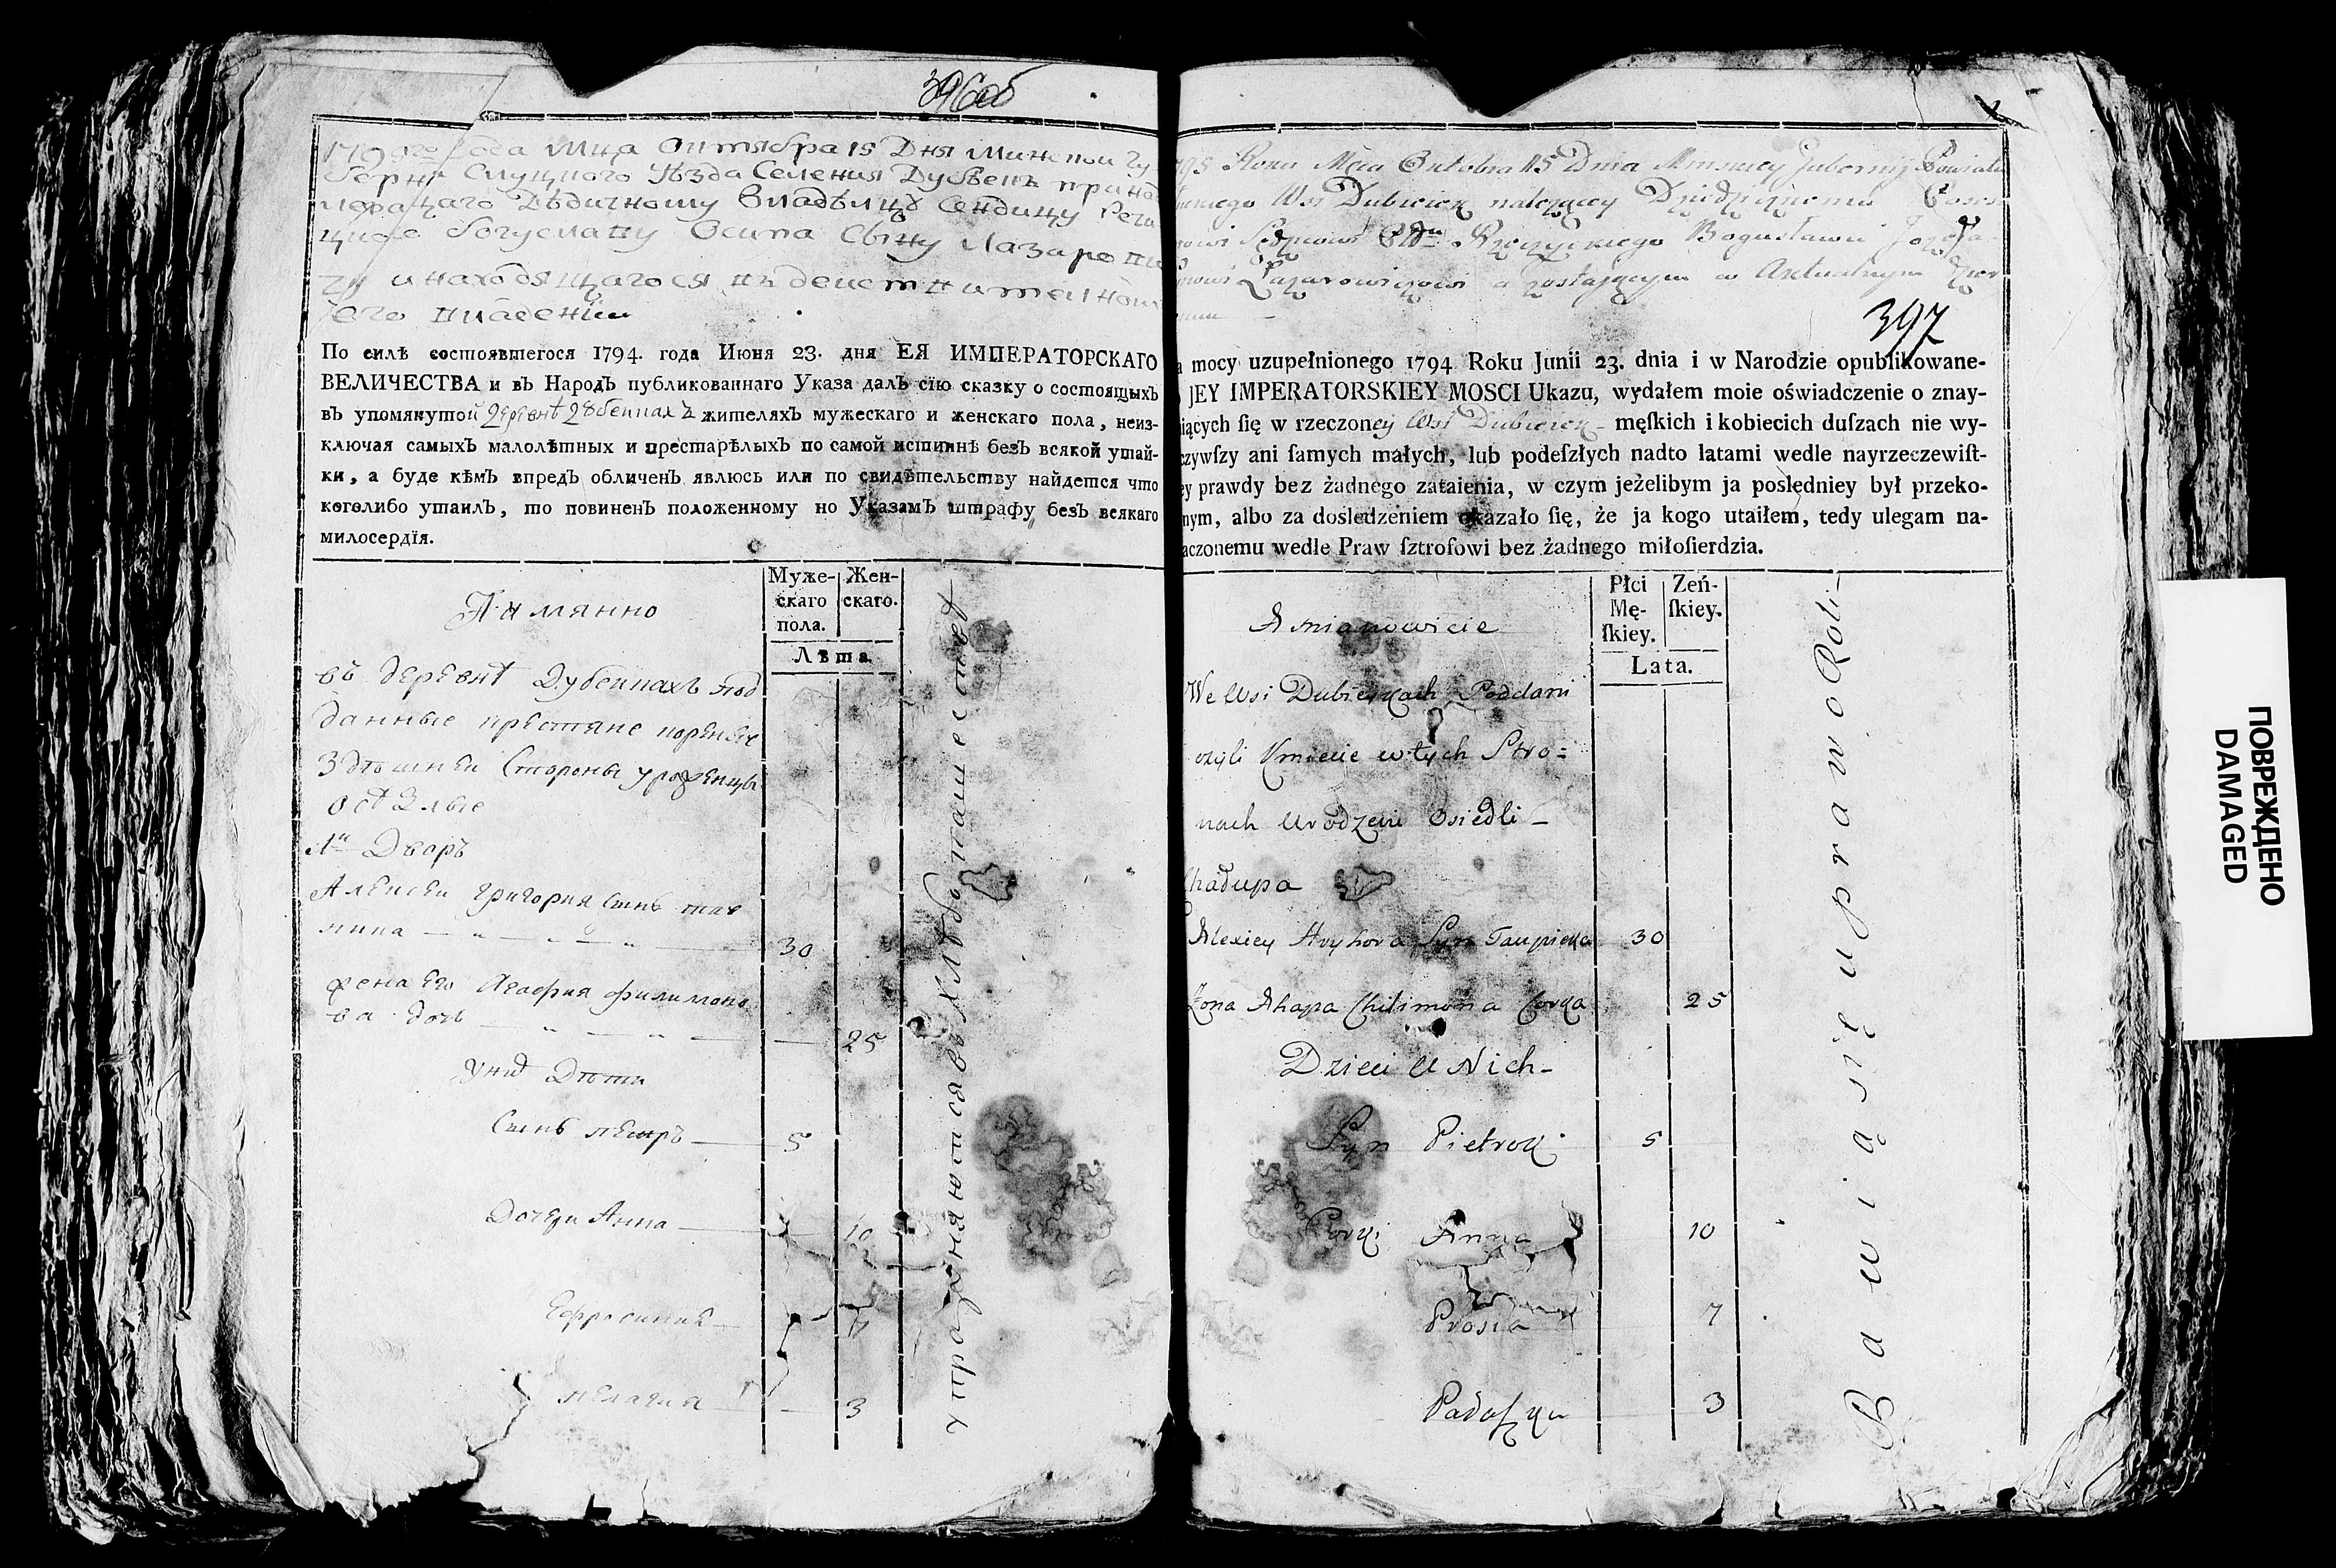 396об
года Мца Октября 15 Дня Минской Гу-
берни Слуцкого Уѣзда Селения Дубеекъ принад
лежащаго Дѣдичному Владѣлцу Сендицу Речи
цкого Богуславу Осипа Сыну Лазарови
чу и находящагося въ действительном
его владении
По силѣ состоявшегося 1794. года Июня 23. дня ЕЯ ИМПЕРАТОРСКАГО
ВЕЛИЧЕСТВА и вЪ НародЪ публикованнаго Указа далЪ сїю сказку о состоящыхЪ
вЪ упомянутой деревнѣ Дубейкахъ жителяхЪ мужескаго и женскаго пола, неиз-
ключая самыхЪ малолѣтных и престарѣлыхЪ по самой истиннѣ безЪ всякой утай-
ки, а буде кѣмЪ впредЪ обличенЪ явлюсь или по свидѣтельству найдется что
коголибо утаилЪ, то повиненЪ положенному по УказамЪ штрафу безЪ всякаго
милосердїя.
Муже-
скаго
пола.
Жен-
скаго.
Лѣта
А имянно
въ деревнѣ Дубейкахъ под
данные крестяне коренные
Здѣшней Стороны уроженцы
осѣдлые
1й Дворъ
Алексей Григория Сынъ тав
пика 30
жена его Агафия филимоно
ва дочь 25
У нихъ Дѣти
Сынъ петръ 5
Дочери Анна 10
Ефросиния 7
пелагия 3
упражняются въ хлѣбопашестве
397
95 Roku Mca Oktobra 15 Dnia Minskiey Gubernij Powiatu
Wsi Dubieiek należącey Dziedzicznemu
Rzeczyckiego Bogusławu Jozefa
Łazarowiczowi a zostającym w Aktualnym
a mocy uzupełnionego 1794 Roku Junii 23. dnia i w Narodzie opublikowane-
JEY IMPERATORSKIEY MOSCI Ukazu, wydałem moie oświadczenie o znay-
iących ſię w rzeczoney Wsi Dubieiek męſkich i kobiecich duſzach nie wy-
czywſzy ani ſamych małych, lub podeſzłych nadto latami wedle nayrzeczewiſt-
ey prawdy bez żadnego zataienia, w czym jeżelibym ja poslędniey był przeko-
nym, albo za dośledzeniem okazało ſię, że ja kogo utaiłem, tedy ulegam na-
aczonemu wedle Praw ſztrofowi bez żadnego miłoſierdzia.
Płci
Mę-
ſkiey.
Zeń-
ſkiey.
Lata.
A mianowicie
We Wsi Dubieykach Poddani
czyli Kmiecie w tych Stro=
nach Urodzeni Osiedli
Chałupa
Alexiey Hryhora Syn Taupieka 30
Żona Ahapa Chilimona Corka 25
Dzieci U Nich-
Syn Pietrok 5
Corki Anna 10
Prosia 7
Pałaſzka 3
Bawią się uprawo Roli
ПОВРЕЖДЕНО
DAMAGED